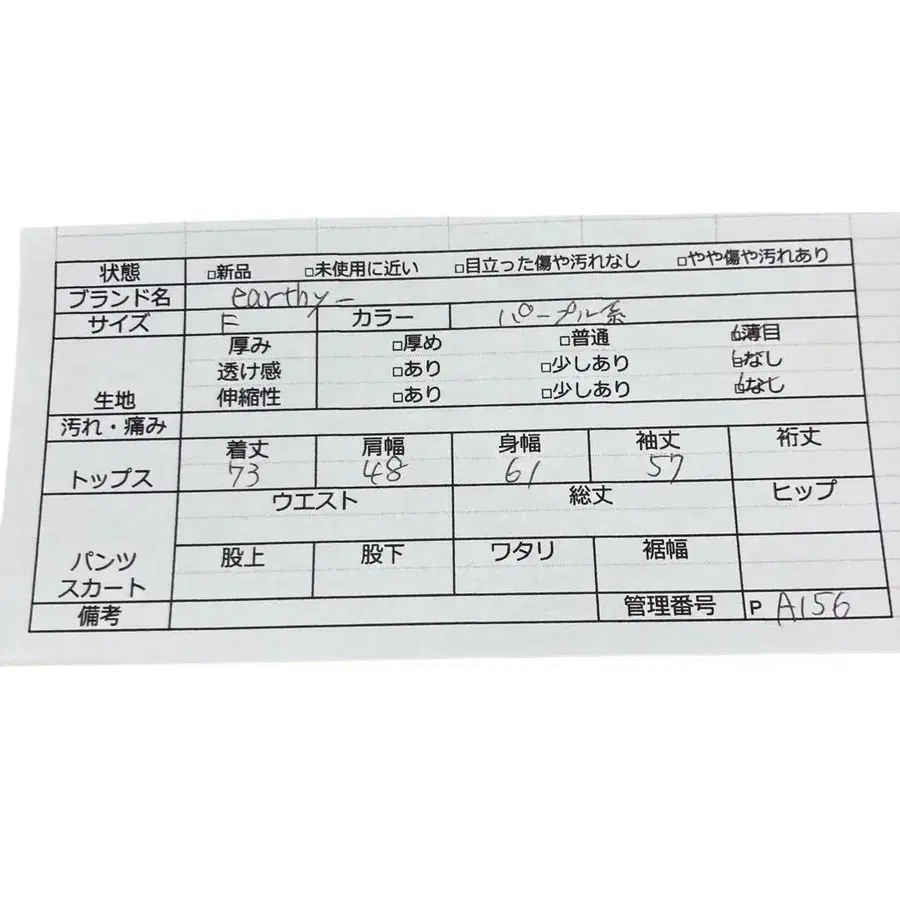 状態 □新品 □未使用に近い □目立った傷や汚れなし □やや傷や汚れあり
ブランド名 earthy_
サイズ F カラー パープル系
生地 厚み □厚め □普通 □薄目
透け感 □あり □少しあり □なし
伸縮性 □あり □少しあり □なし
汚れ・痛み
トップス 着丈 肩幅 身幅 袖丈 裄丈
73 48 61 57
パンツ スカート ウエスト 総丈 ヒップ
股上 股下 ワタリ 裾幅
備考 管理番号 P A156